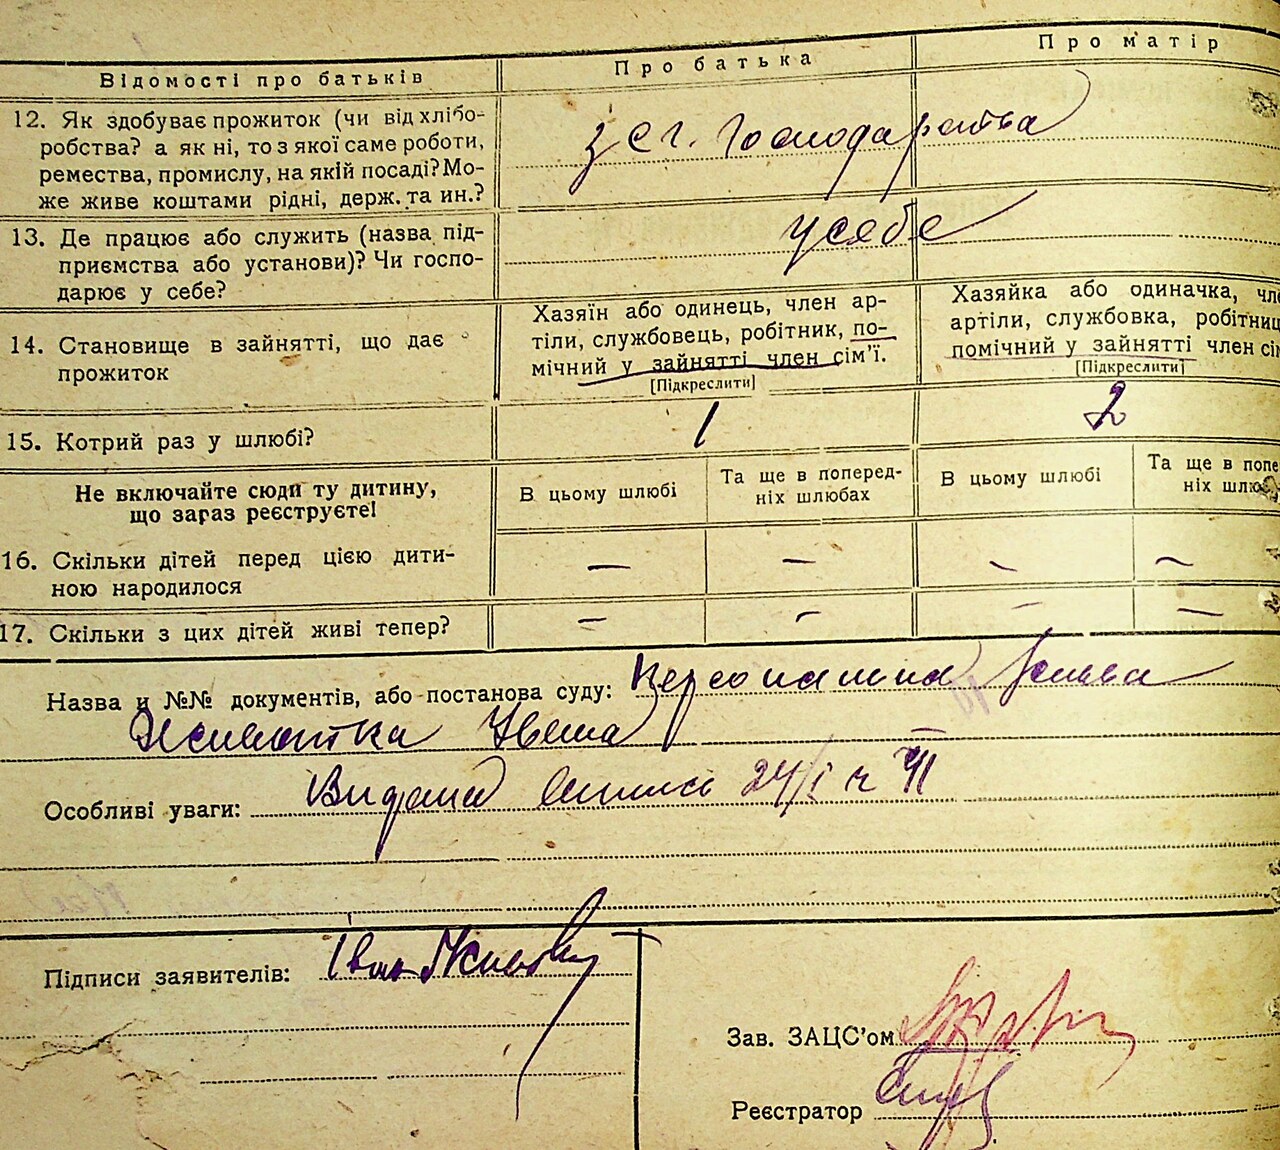 Відомості про батьків
Про батька
Про матір
12. Як здобуває прожиток (чи від хлібо-
робства? а як ні, то з якої саме роботи,
ремества, промислу, на якій посаді? Мо-
же живе коштами рідні, держ. та ин.?
з с г. Господарства
13. Де працює або служить (назва під-
приємства або установи)? Чи госпо-
дарює у себе?
у себе
14. Становище в зайнятті, що дає
прожиток
Хазяїн або одинець, член ар-
тіли, службовець, робітник, по-
мічний у зайнятті член сім’ї.
[Підкреслити]
Хазяйка або одиначка, чле
артіли, службовка, робітниц
помічний у зайнятті член сім
[Підкреслити]
15. Котрий раз у шлюбі?
1
2
Не включайте сюди ту дитину,
що зараз реєструєте!
В цьому шлюбі
Та ще в поперед-
ніх шлюбах
В цьому шлюбі
Та ще в попе
ніх шлюб
16. Скільки дітей перед цією дити-
ною народилося
— — — —
17. Скільки з цих дітей живі тепер?
— — — —
Назва и №№ документів, або постанова суду: Персональна
Ивана
Особливі уваги: Видана 24/I
Підписи заявителів: Іван
Зав. ЗАЦС’ом
Реєстратор